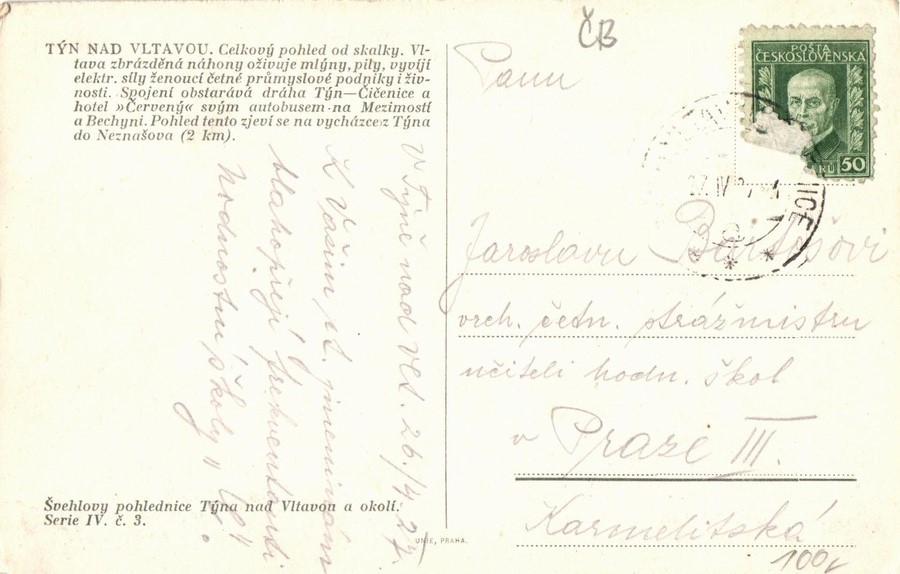 TÝN NAD VLTAVOU. Celkový pohled od skalky. Vl-
tava zbrázděná náhony oživuje mlýny, pily, vyvíjí
elektr. síly ženoucí četné průmyslové podniky i živ-
nosti. Spojení obstarává dráha Týn—Čičenice a
hotel »Červený« svým autobusem na Mezimostí
a Bechyni. Pohled tento zjeví se na vycházce z Týna
do Neznašova (2 km).
V Týně nad Vlt. 26./4. 27.
K Vašim jmeninám
blahopřejí frekventanti
hodnostní školy
Švehlovy pohlednice Týna nad Vltavou a okolí.
Serie IV. č. 3.
UNIE, PRAHA.
ČB
POŠTA
ČESKOSLOVENSKÁ
50
Panu
Jaroslavu Bartošovi
vrch. četn. strážmistru
učiteli hodn. škol
v Praze III.
Karmelitská
100,